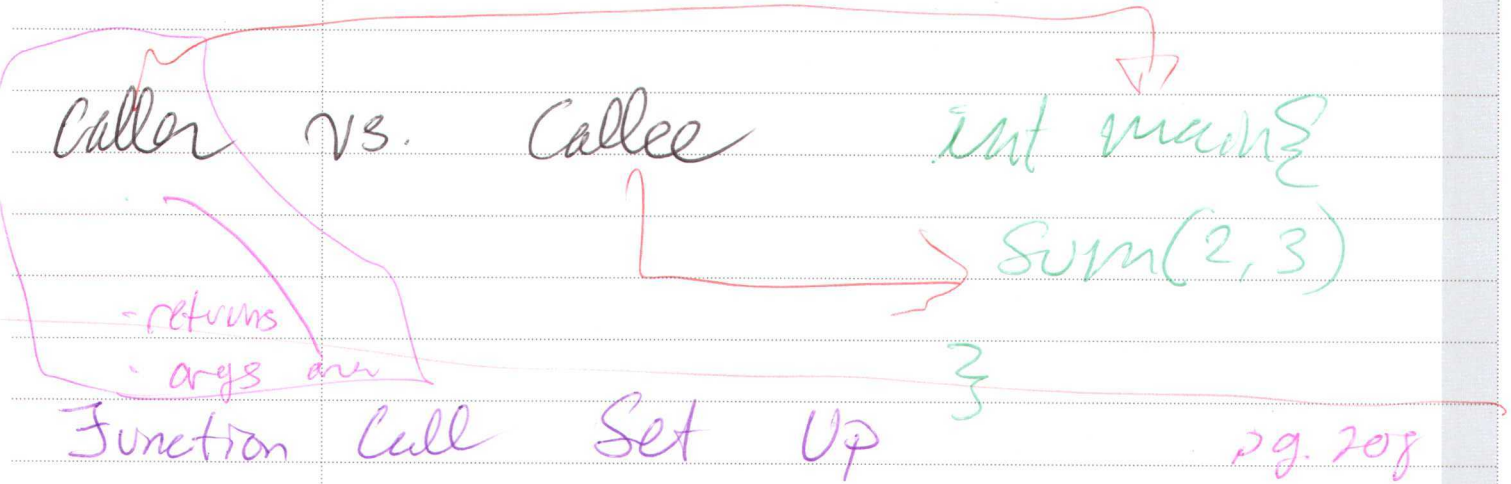 Caller vs. Callee int main{
sum(2,3)
- returns
}
- args
Function Call Set Up pg. 208